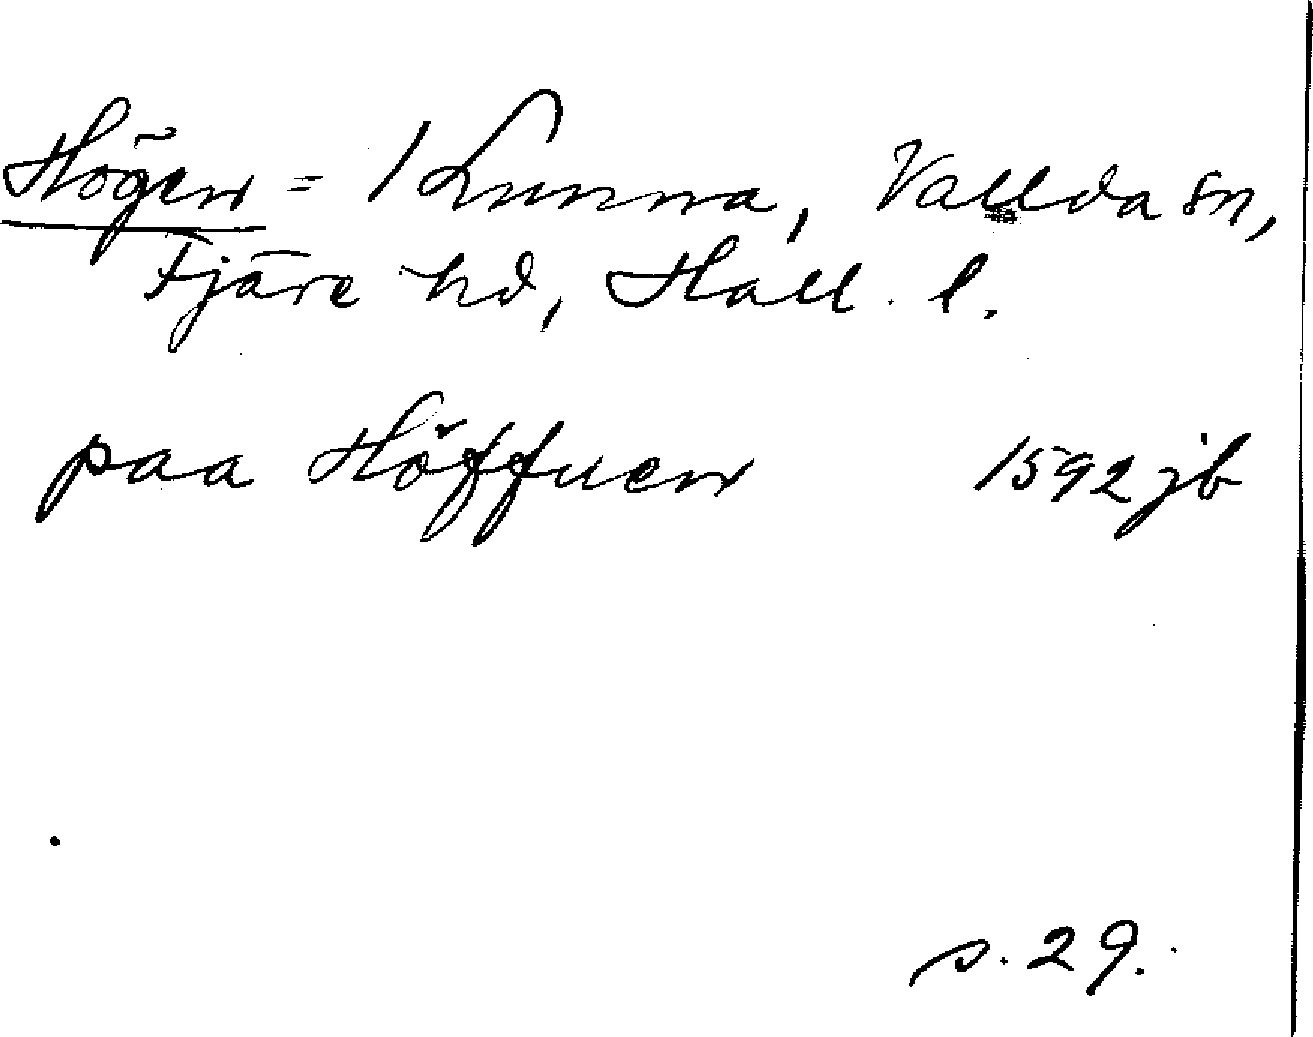 Högen = 1 Kunna, Vallda sn,
Fjäre hd, Hall. l.
paa Höffuen 1592 jb
s. 29.